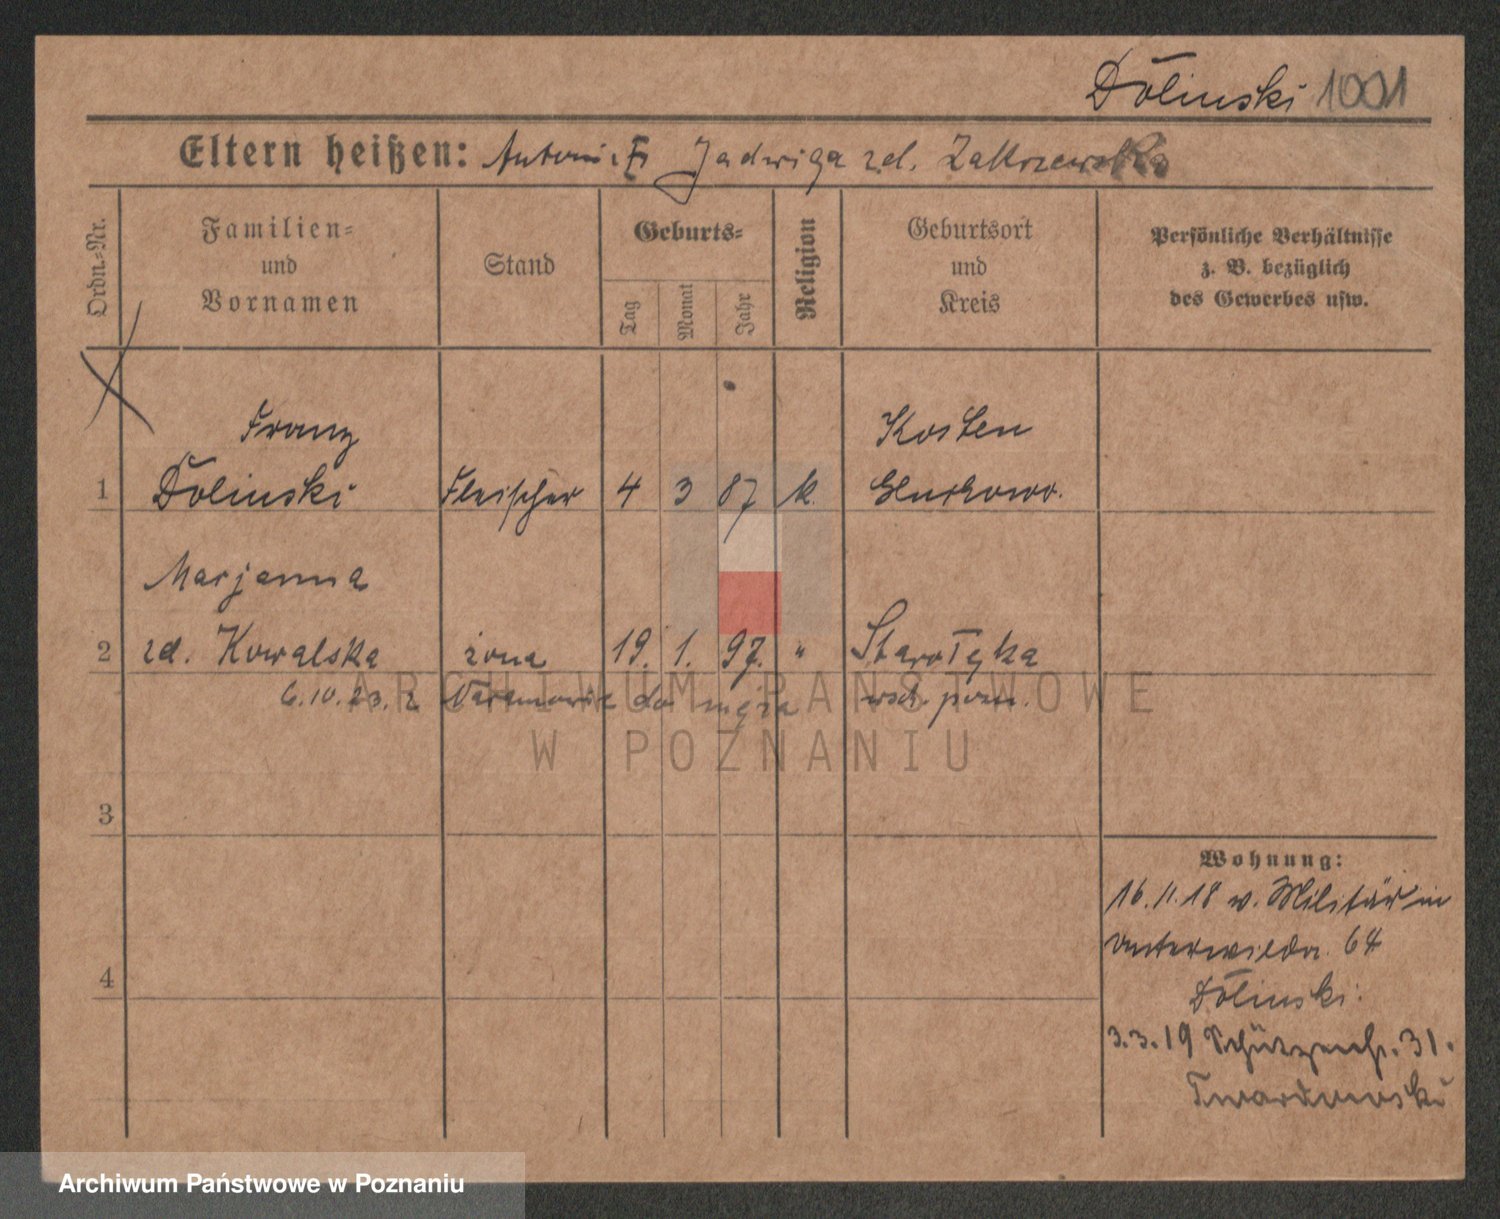 Dolinski 1001
Eltern heißen: Antoni i Fr Jadwiga zd. Zakrzewska
Ordn.-Nr.
Familien-
und
Vornamen
Stand
Geburts-
Tag
Monat
Jahr
Religion
Geburtsort
und
Kreis
Persönliche Verhältnisse
z. B. bezüglich
des Gewerbes usw.
Franz Kosten
1 Dolinski Fleischer 4 3 87 k.
Marjanna
2 zd. Kowalska żona 19. 1. 97. " Starołęka
6.10.23. z do męża wsch. pozn.
ARCHIWUM PAŃSTWOWE
W POZNANIU
3
Wohnung:
16.11.18 v. Militär in
Unterwilda. 64
4
Dolinski.
3.3.19 Schützenstr. 31.
Twardowski
Archiwum Państwowe w Poznaniu